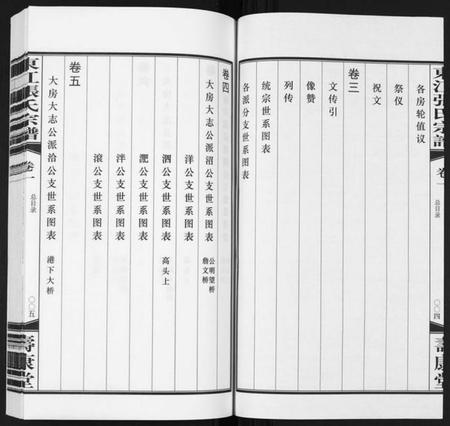 東江張氏宗譜
卷一
总目录
〇〇四
壽康堂
各房轮值议
祭仪
祝文
卷三
文传引
像赞
列传
统宗世系图表
各派分支世系图表
東江張氏宗譜
卷一
总目录
〇〇五
壽康堂
卷四
大房大志公派沼公支世系图表
公明望桥
詹文桥
洋公支世系图表
泗公支世系图表 高头上
淝公支世系图表
泮公支世系图表
滚公支世系图表
卷五
大房大志公派洽公支世系图表 港下大桥